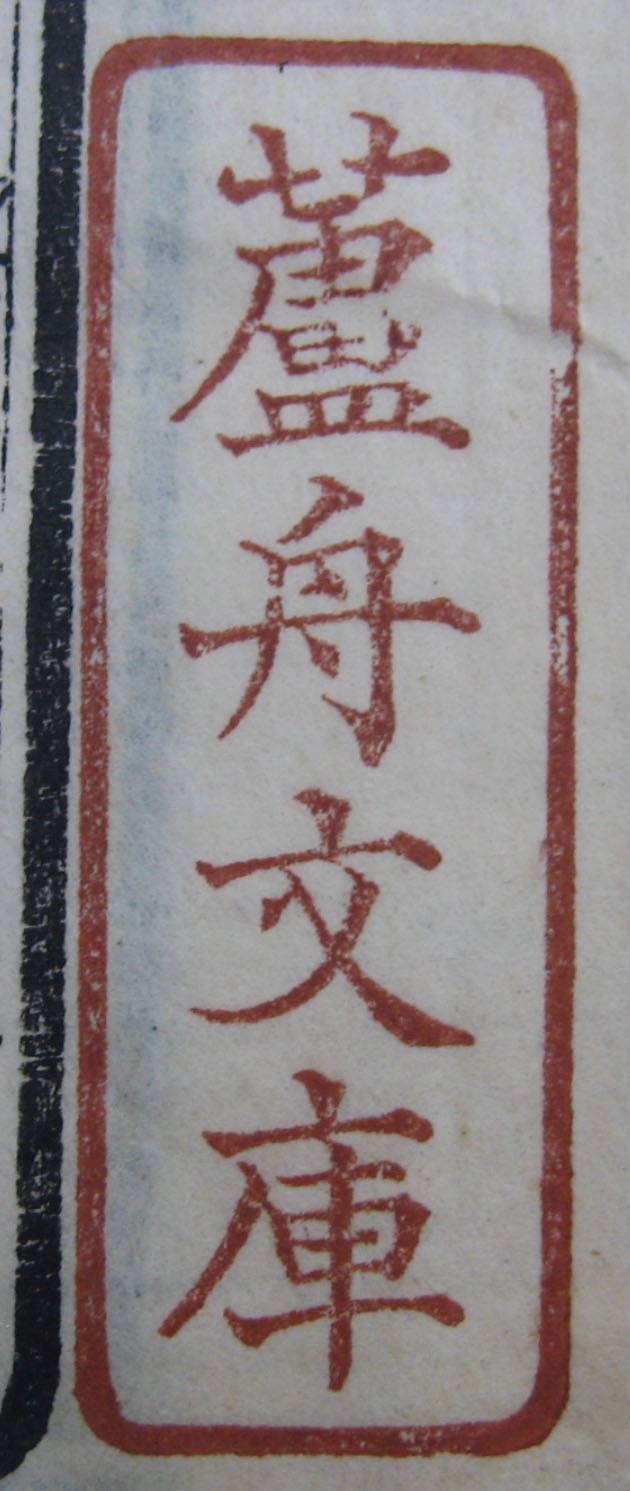 蘆舟文庫